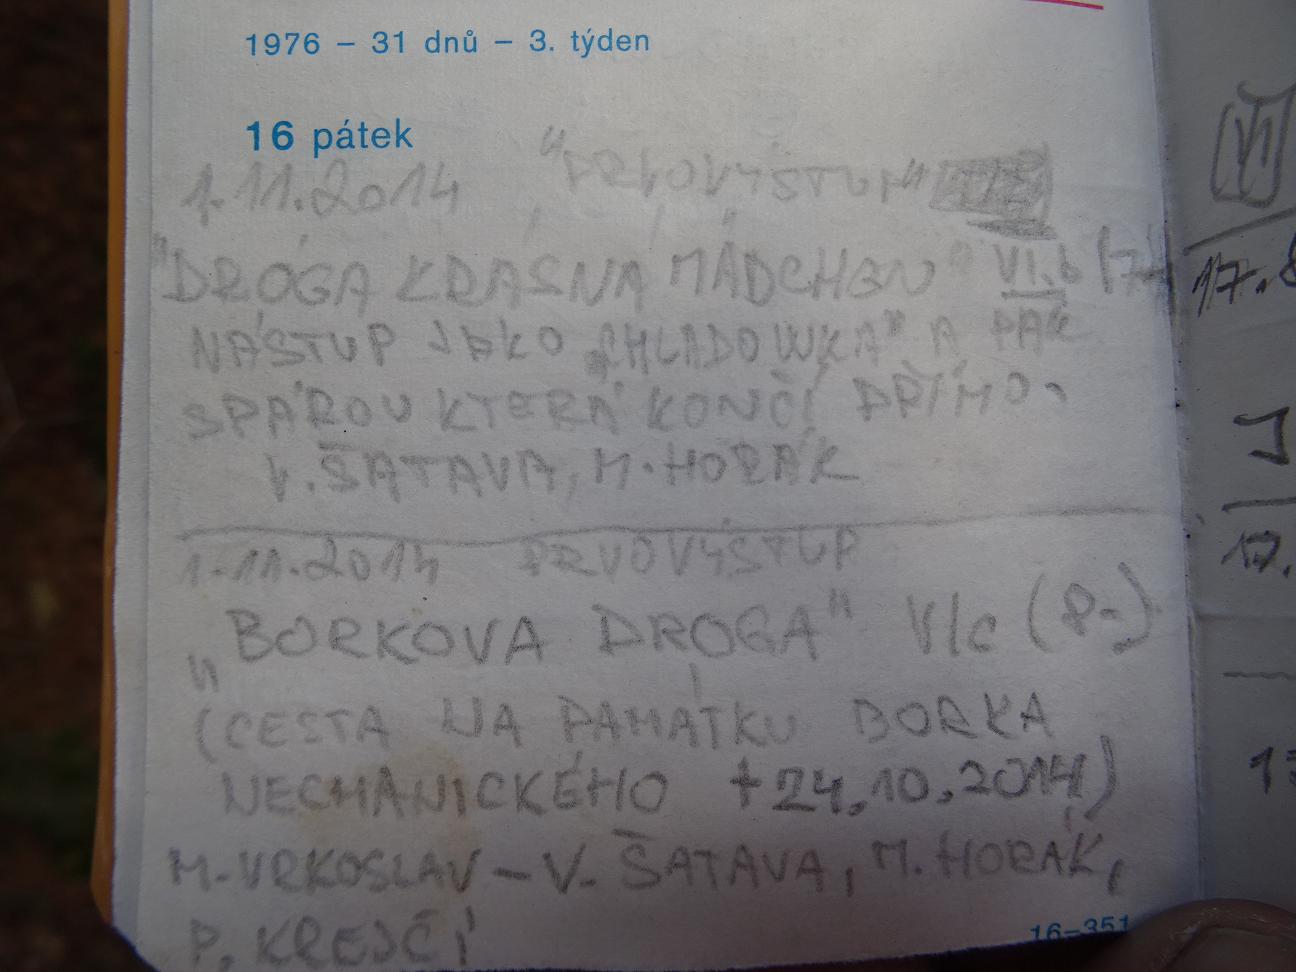 1976 – 31 dnů – 3. týden
16 pátek
1.11.2014 "PRVOVÝSTUP"
"DRÓGA KRÁSNA MÁDCHEN" VI.b (7-
NÁSTUP JAKO „CHLADOWKA" A PAK
SPÁROU KTERÁ KONČÍ PŘÍMO.
V. ŠATAVA, M. HORÁK
1.11.2014 PRVOVÝSTUP
„BORKOVA DROGA" VIc (8-)
(CESTA NA PAMÁTKU BORKA
NECHANICKÉHO +24.10.2014)
M. VRKOSLAV – V. ŠATAVA, M. HORÁK,
P. KREJČÍ
16–351
VI
17.
J
17.